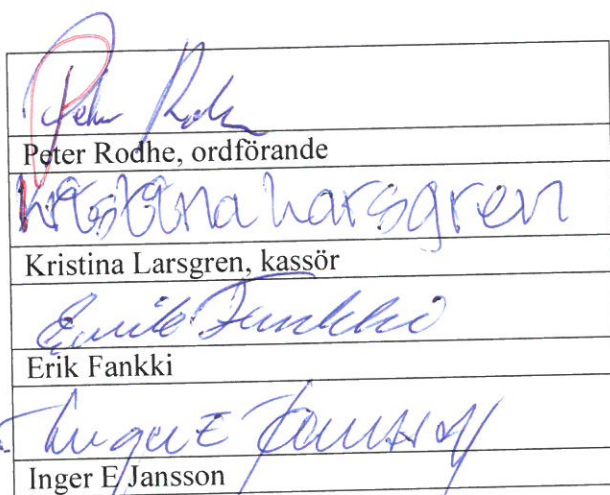 Peter Rodhe
Peter Rodhe, ordförande
Kristina Larsgren
Kristina Larsgren, kassör
Erik Fankki
Erik Fankki
Inger E Jansson
Inger E Jansson